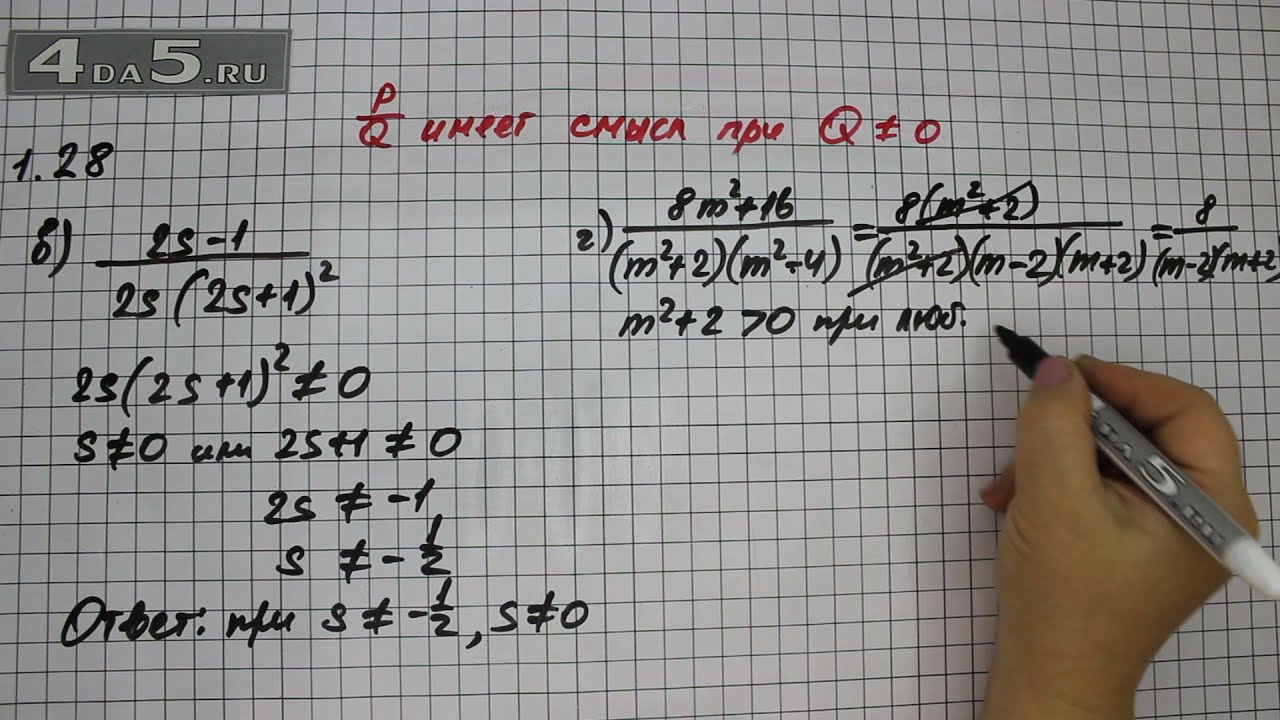 4DA5.RU
P/Q имеет смысл при Q ≠ 0
1.28
б) (2s-1)/(2s(2s+1)²)
2s(2s+1)² ≠ 0
s≠0 или 2s+1 ≠ 0
2s ≠ -1
s ≠ -1/2
Ответ: при s ≠ -1/2, s≠0
г) (8m²+16)/((m²+2)(m²-4)) = (8(m²+2))/((m²+2)(m-2)(m+2)) = 8/((m-2)(m+2)
m²+2 >0 при люб.
DA5.RU